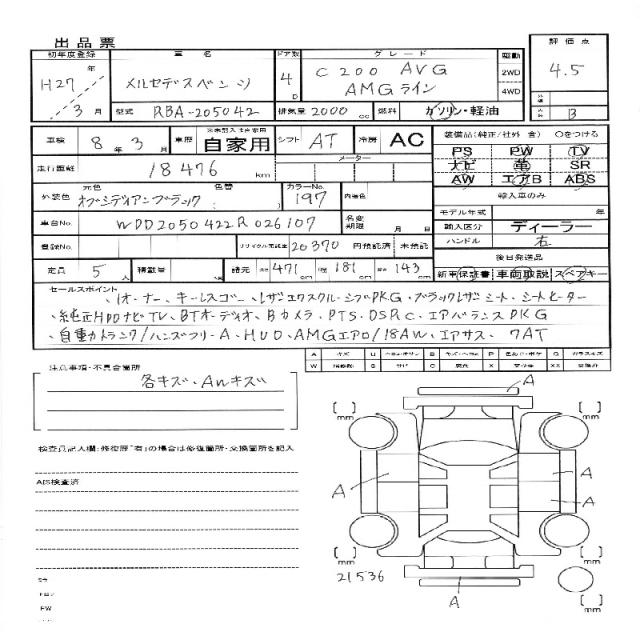 出品票
初年度登録 車名 ドア数 グレード 駆動 評価点
H27年 メルセデスベンツ 4D C200 AVG 2WD 4.5
3月 AMGライン 4WD
型式 RBA-205042 排気量 2000 cc 燃料 ガソリン・軽油 B
車検 8年3月 車歴 自家用 シフト AT 冷房 AC 装備品(純正/社外 含) ○をつける
PS PW TV
走行距離 18476 km メーター ナビ 革 SR
AW エアB ABS
元色 色替 カラーNo. 輸入車のみ
外装色 オブシディアンブラック ( ) 197 内装色 モデル年式 年
車台No. WDD2050422R026107 名変期限 月 日 輸入区分 ディーラー
ハンドル 右
登録No. リサイクル預託金 20370 円預託済 未預託 後日発送品
定員 5人 積載量 諸元 471 cm 181 cm 143 cm 新車保証書 車両取説 スペアキー
セールスポイント
、1オーナー、キーレスゴー、レザーエクスクルーシブPKG、ブラックレザーシート、シートヒーター
、純正HDDナビTV、BTオーディオ、Bカメラ、PTS、DSRC、エアバランスPKG
、自動トランク/ハンズフリーA、HUD、AMGエアロ/18AW、エアサス、7AT
注意事項・不具合箇所
各キズ、AWキズ
検査員記入欄:修復歴"有"の場合は修復箇所・交換箇所を記入
AIS検査済
A U B P G
W S C X XX
A
mm mm
A A
A
mm mm
21536
A
mm
PW